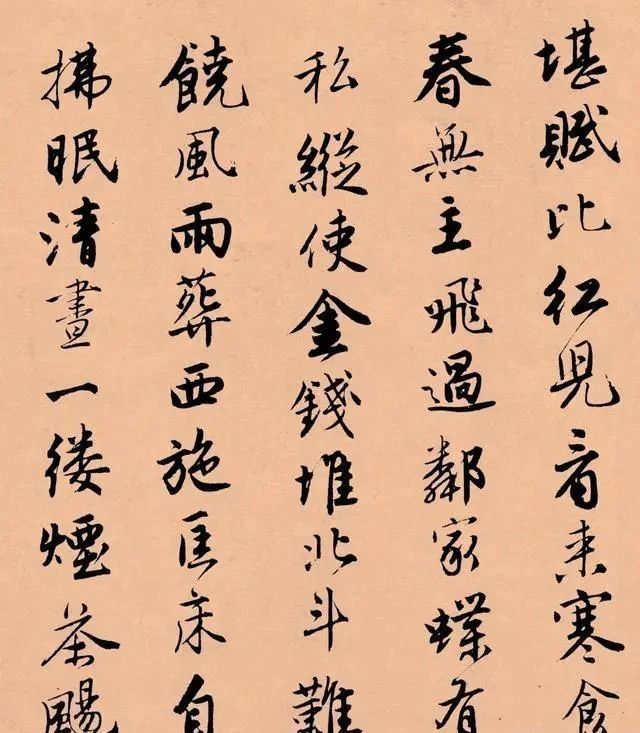 堪賦比红児看来寒食
春無主飛過鄰家蝶有
私縱使金錢堆北斗難
饒風雨葬西施匡床自
拂眠清晝一缕煙茶颺